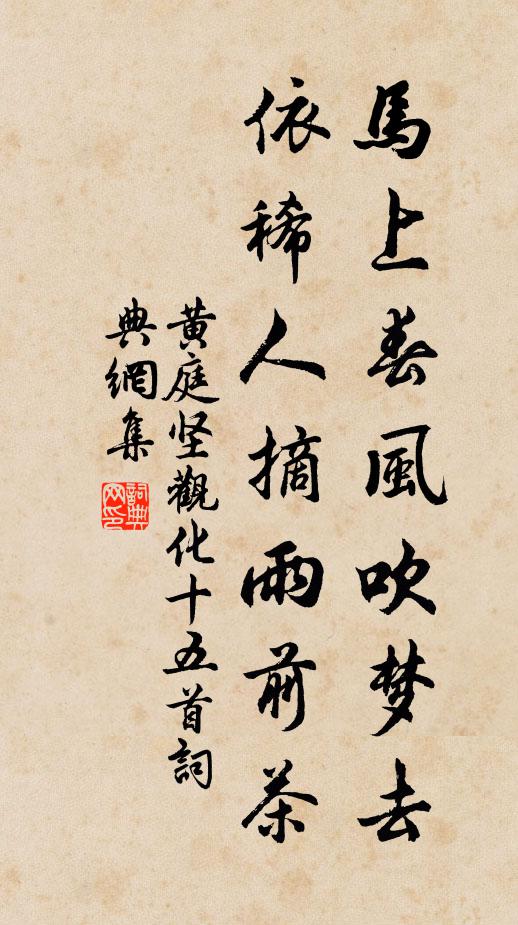 馬上春風吹梦去
依稀人摘雨前茶
黄庭坚觀化十五首詞
典網集
詞典网印